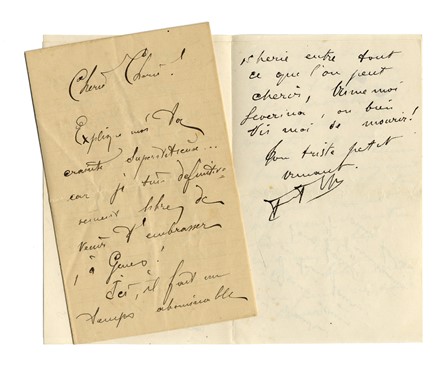 Cherie Cherie!
Explique moi ta
crainte superstitieuse...
car je suis definitive-
ment libre de
venir t'embrasser
à Genes!
Ici, il fait un
temps abominable
cherie entre tout
ce que l'on peut
cherir,
Severina, ou bien
dis moi de mourir!
Ton triste petit